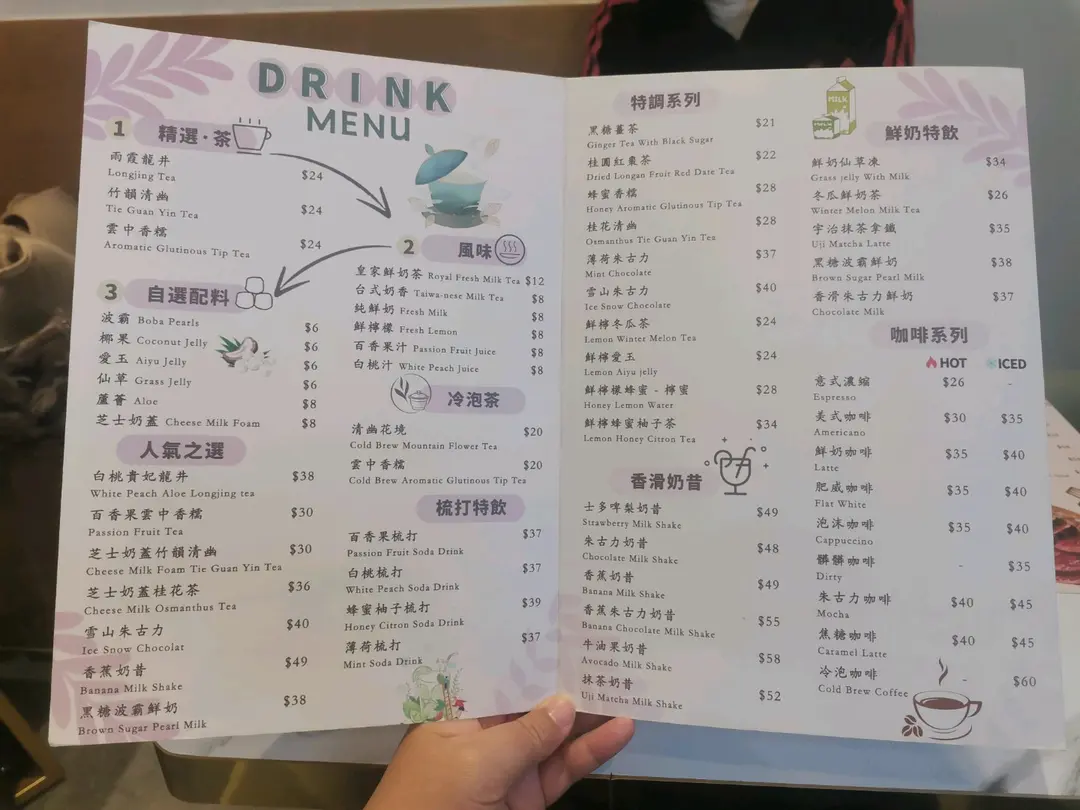 DRINK
MENU
1 精選·茶
雨霞龍井
Longjing Tea $24
竹韻清幽
Tie Guan Yin Tea $24
雲中香糯
Aromatic Glutinous Tip Tea $24
2 風味
皇家鮮奶茶 Royal Fresh Milk Tea $12
台式奶香 Taiwa-nese Milk Tea $8
純鮮奶 Fresh Milk $8
鮮檸檬 Fresh Lemon $8
百香果汁 Passion Fruit Juice $8
白桃汁 White Peach Juice $8
3 自選配料
波霸 Boba Pearls $6
椰果 Coconut Jelly $6
愛玉 Aiyu Jelly $6
仙草 Grass Jelly $6
蘆薈 Aloe $8
芝士奶蓋 Cheese Milk Foam $8
人氣之選
白桃貴妃龍井 $38
White Peach Aloe Longjing tea
百香果雲中香糯 $30
Passion Fruit Tea
芝士奶蓋竹韻清幽 $30
Cheese Milk Foam Tie Guan Yin Tea
芝士奶蓋桂花茶 $36
Cheese Milk Osmanthus Tea
雪山朱古力 $40
Ice Snow Chocolat
香蕉奶昔 $49
Banana Milk Shake
黑糖波霸鮮奶 $38
Brown Sugar Pearl Milk
冷泡茶
清幽花境 $20
Cold Brew Mountain Flower Tea
雲中香糯 $20
Cold Brew Aromatic Glutinous Tip Tea
梳打特飲
百香果梳打 $37
Passion Fruit Soda Drink
白桃梳打 $37
White Peach Soda Drink
蜂蜜柚子梳打 $39
Honey Citron Soda Drink
薄荷梳打 $37
Mint Soda Drink
特調系列
黑糖薑茶 $21
Ginger Tea With Black Sugar
桂圓紅棗茶 $22
Dried Longan Fruit Red Date Tea
蜂蜜香糯 $28
Honey Aromatic Glutinous Tip Tea
桂花清幽 $28
Osmanthus Tie Guan Yin Tea
薄荷朱古力 $37
Mint Chocolate
雪山朱古力 $40
Ice Snow Chocolate
鮮檸冬瓜茶 $24
Lemon Winter Melon Tea
鮮檸愛玉 $24
Lemon Aiyu jelly
鮮檸檬蜂蜜 - 檸蜜 $28
Honey Lemon Water
鮮檸蜂蜜柚子茶 $34
Lemon Honey Citron Tea
香滑奶昔
士多啤梨奶昔 $49
Strawberry Milk Shake
朱古力奶昔 $48
Chocolate Milk Shake
香蕉奶昔 $49
Banana Milk Shake
香蕉朱古力奶昔 $55
Banana Chocolate Milk Shake
牛油果奶昔 $58
Avocado Milk Shake
抹茶奶昔 $52
Uji Matcha Milk Shake
MILK
MILK
鮮奶特飲
鮮奶仙草凍 $34
Grass jelly With Milk
冬瓜鮮奶茶 $26
Winter Melon Milk Tea
宇治抹茶拿鐵 $35
Uji Matcha Latte
黑糖波霸鮮奶 $38
Brown Sugar Pearl Milk
香滑朱古力鮮奶 $37
Chocolate Milk
咖啡系列
HOT ICED
意式濃縮 $26 -
Espresso
美式咖啡 $30 $35
Americano
鮮奶咖啡 $35 $40
Latte
肥威咖啡 $35 $40
Flat White
泡沫咖啡 $35 $40
Cappuccino
髒髒咖啡 - $35
Dirty
朱古力咖啡 $40 $45
Mocha
焦糖咖啡 $40 $45
Caramel Latte
冷泡咖啡 - $60
Cold Brew Coffee